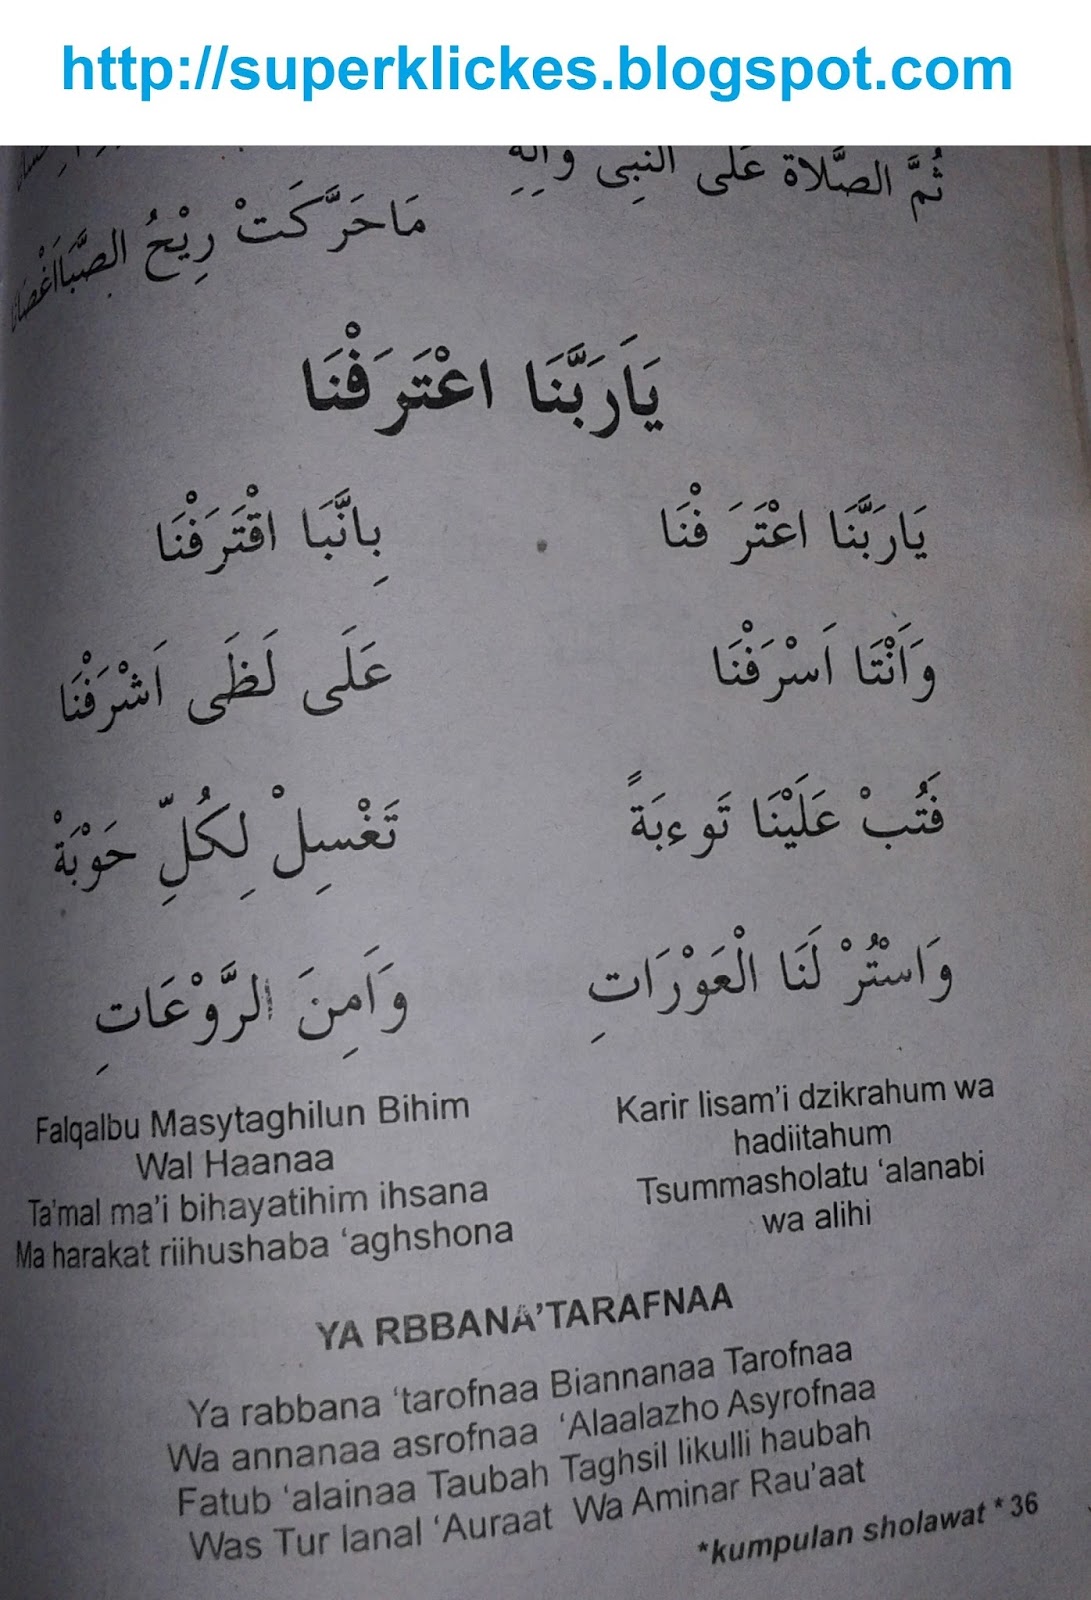 http://superklickes.blogspot.com
ثُمَّ الصَّلاة عَلَى النبِى وآلِهِ
مَاحَرَّكَتْ رِيْحُ الصَّبَااَغْصَانَا
يَارَبَّنَا اعْتَرَفْنَا
يَارَبَّنَا اعْتَرَفْنَا بِانَّبَا اقْتَرَفْنَا
وَاَنْتَا اَسْرَفْنَا عَلَى لَظَى اَشْرَفْنَا
فَتُبْ عَلَيْنَا تَوءبَةً تَغْسِلْ لِكُلِّ حَوْبَةْ
وَاسْتُرْ لَنَا الْعَوْرَاتِ وَاَمِنَ الرَّوْعَاتِ
Falqalbu Masytaghilun Bihim
Wal Haanaa
Ta'mal ma'i bihayatihim ihsana
Ma harakat riihushaba ‘aghshona
Karir lisam'i dzikrahum wa
hadiitahum
Tsummasholatu ‘alanabi
wa alihi
YA RBBANA’TARAFNAA
Ya rabbana ‘tarofnaa Biannanaa Tarofnaa
Wa annanaa asrofnaa ‘Alaalazho Asyrofnaa
Fatub ‘alainaa Taubah Taghsil likulli haubah
Was Tur lanal ‘Auraat Wa Aminar Rau’aat
*kumpulan sholawat * 36